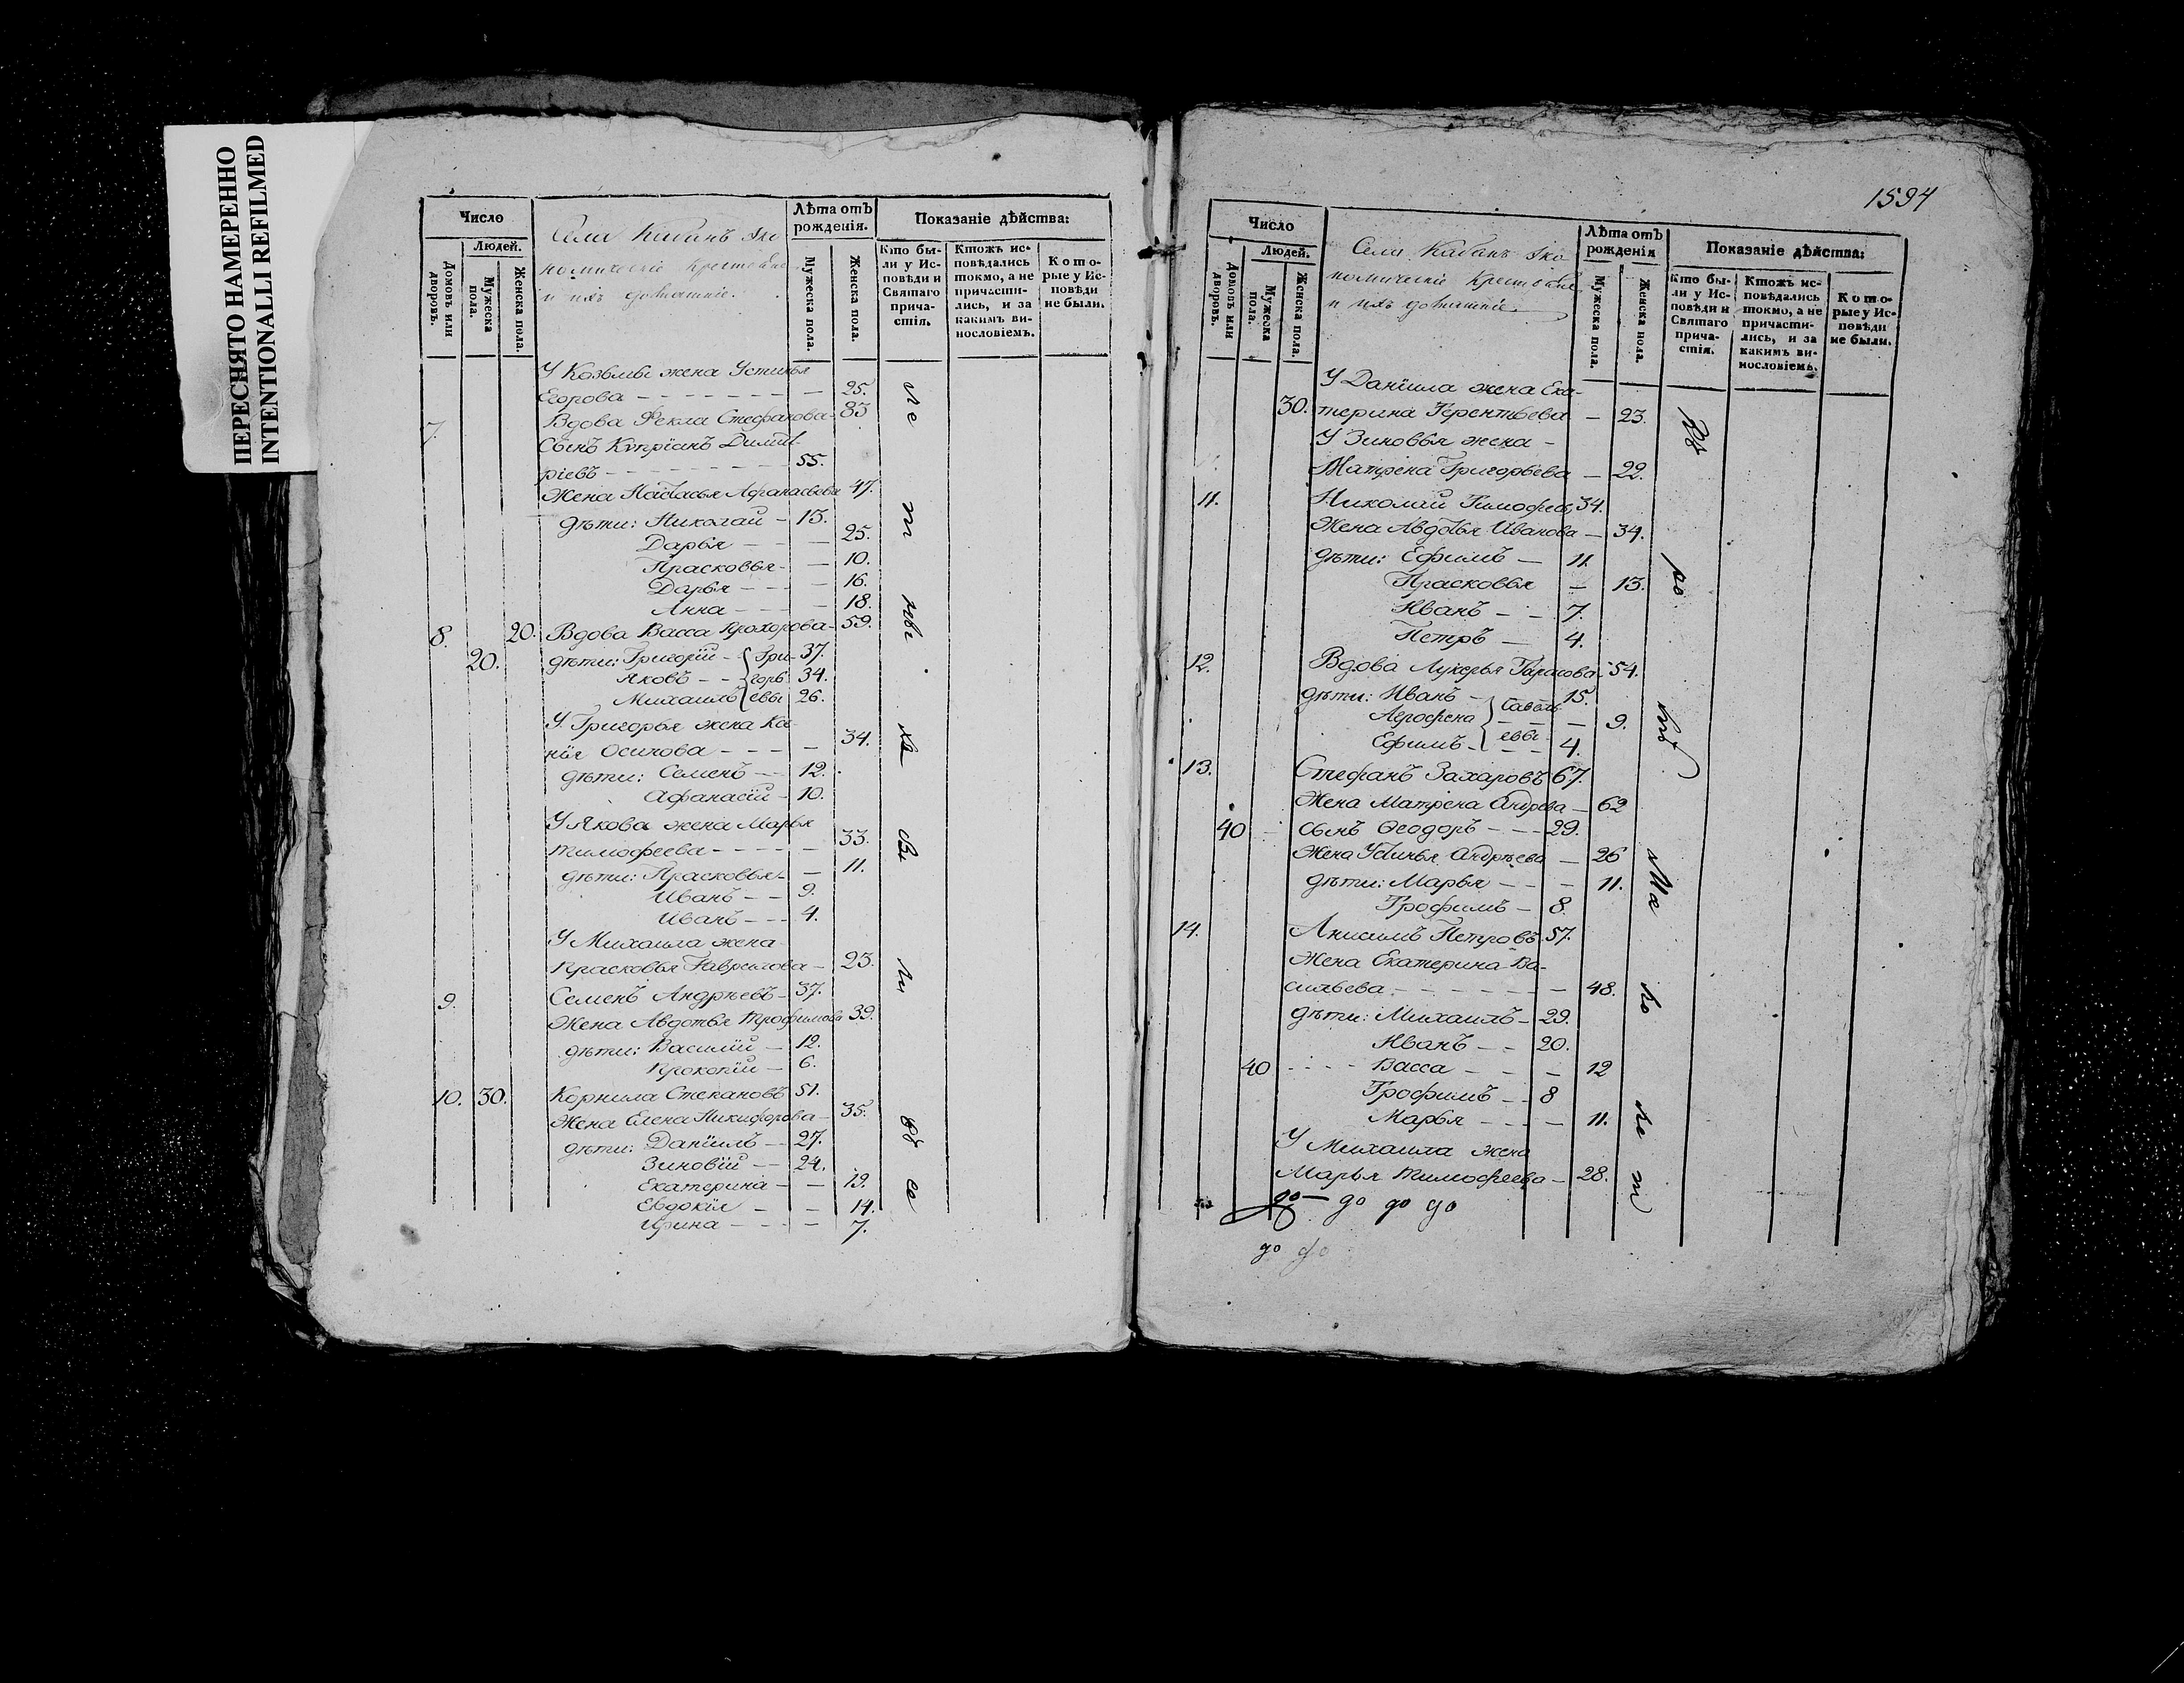 ПЕРЕСНЯТО НАМЕРЕННО
INTENTIONALLI REFILMED
Число
Людей.
Домовъ или дворовъ.
Мужеска пола.
Женска пола.
Села Кабанъ Эко
номическіе крестьяне
и ихъ домашніе.
Лѣта отъ рожденія.
Мужеска пола.
Женска пола.
Показаніе дѣйства:
Кто бы-
ли у Ис-
повѣди и
Святаго
прича-
стія.
Ктожъ ис-
повѣдались
токмо, а не
причасти-
лись, и за
какимъ ви-
нословіемъ.
Кото-
рые у Ис-
повѣди
не были.
У Козьмы жена Устинья
Егорова - - - 25.
Вдова Фекла Стефанова - 83
7.
Сынъ Купріанъ Димит-
ріевъ - - - 55.
Жена Настасья Афанасьева 47.
дѣти: Николай - 13.
Дарья - - 25.
Прасковья - - 10.
Дарья - - 16.
Анна - - 18.
8. 20. Вдова Васса Прохорова - 59.
20. дѣти: Григорій - { Гри- 37.
Яковъ - - горь 34.
Михаилъ евы 26.
У Григорья жена Ксе-
нія Осипова - - - 34.
дѣти: Семенъ - 12.
Афанасій - 10.
У Якова жена Марья
Тимофеева - - - 33.
дѣти: Прасковья - - 11.
Иванъ - - 9.
Иванъ - - 4.
У Михаила жена
Прасковья Гаврилова - 23.
9. Семенъ Андрѣевъ - 37.
Жена Авдотья Трофимова 39.
дѣти: Василій - 12.
Прокопій - 6.
10. 30. Корнила Степановъ 51.
Жена Елена Никифорова - 35.
дѣти: Даніилъ - 27.
Зиновій - 24.
Екатерина - - 19.
Евдокія - - 14.
Ирина - - 7.
1594
Число
Людей.
Домовъ или дворовъ.
Мужеска пола.
Женска пола.
Села Кабанъ Эко
номическіе крестьяне
и ихъ домашніе
Лѣта отъ рожденія
Мужеска пола.
Женска пола.
Показаніе дѣйства:
Кто бы-
ли у Ис-
повѣди и
Святаго
прича-
стія.
Ктожъ ис-
повѣдались
токмо, а не
причасти-
лись, и за
какимъ ви-
нословіемъ.
Кото-
рые у Ис-
повѣди
не были.
У Даніила жена Ека-
30. терина Терентьева - 23.
У Зиновья жена -
Матрена Григорьева - 22.
11. Николай Тимофеевъ 34.
Жена Авдотья Иванова - 34.
дѣти: Ефимъ - 11.
Прасковья - 13.
Иванъ - - 7.
Петръ - 4.
12. Вдова Лукерья Тарасова 54.
дѣти: Иванъ - 15.
Агрофена } Савель - 9.
Ефимъ - евы - 4.
13. Стефанъ Захаровъ 67.
Жена Матрена Андрева - 62
40 сынъ Ѳеодоръ - - - 29.
Жена Устинья Андрѣева - 26
дѣти: Марья - - - 11.
Трофимъ - 8.
14. Анисимъ Петровъ 57.
Жена Екатерина Ва-
сильева - - - 48.
дѣти: Михаилъ - 29.
Иванъ - - 20.
40 - - - Васса - - - 12
Трофимъ - - 8
Марья - - - 11.
У Михаила жена
Марья Тимофеева - 28.
до - до до до
до до